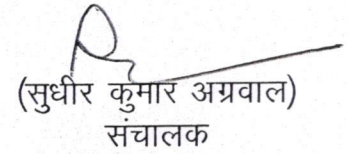 (सुधीर कुमार अग्रवाल)
संचालक